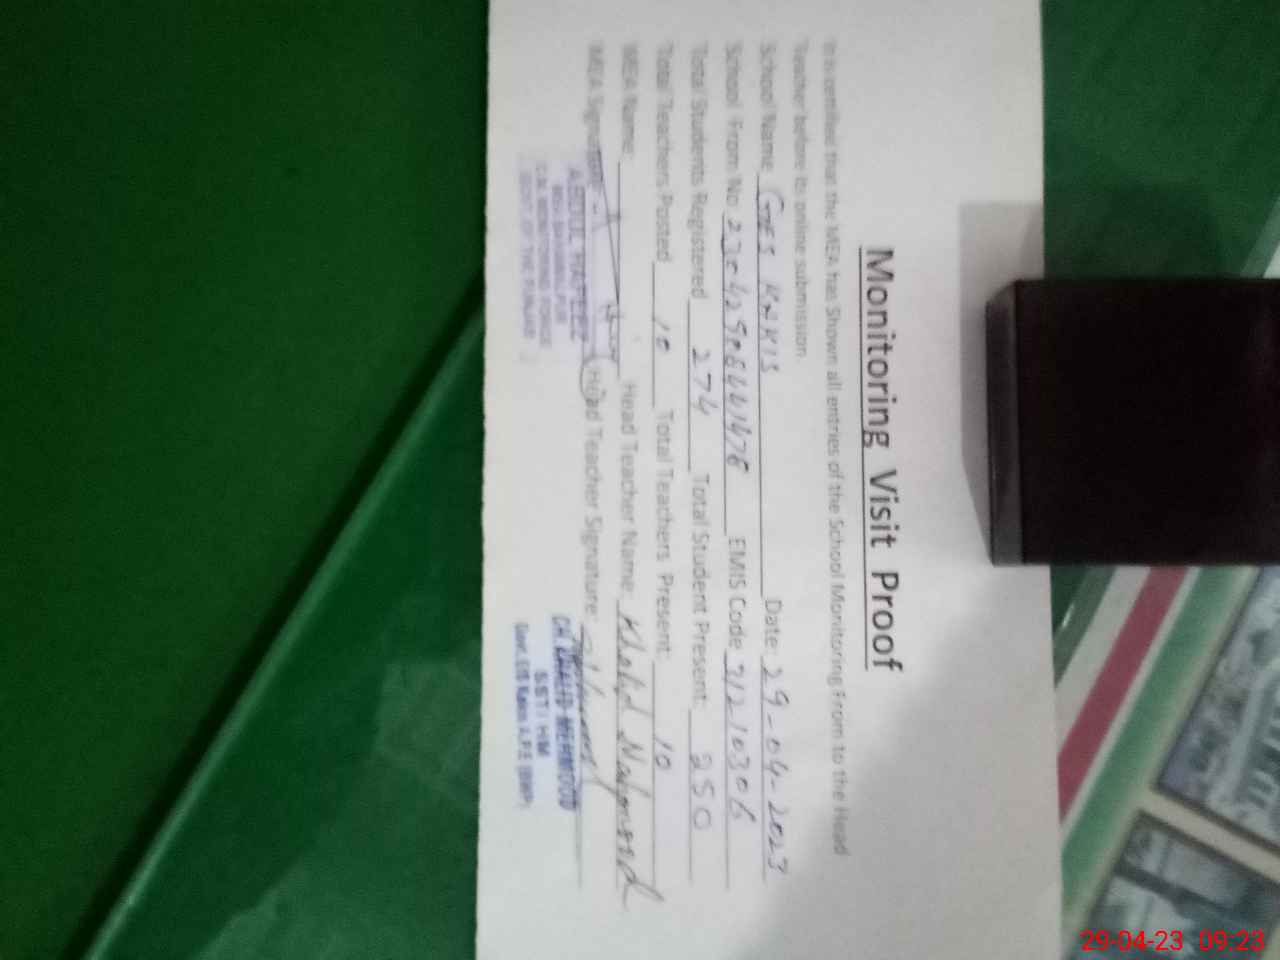 Monitoring Visit Proof
It is certified that the MEA has Shown all entries of the School Monitoring From to the Head
Teacher before its online submission.
School Name GES Date: 29-04-2023
School From No EMIS Code 31210306
Total Students Registered 274 Total Student Present: 250
Total Teachers Posted 10 Total Teachers Present: 10
MEA Name: Head Teacher Name: Khalid Mahmood
MEA Signature Head Teacher Signature:
ABDUL HAFEEZ
MEA BAHAWALPUR
C.M. MONITORING FORCE
GOVT OF THE PUNJAB
CH. KHALID MEHMOOD
SSTI HM
29-04-23 09:23